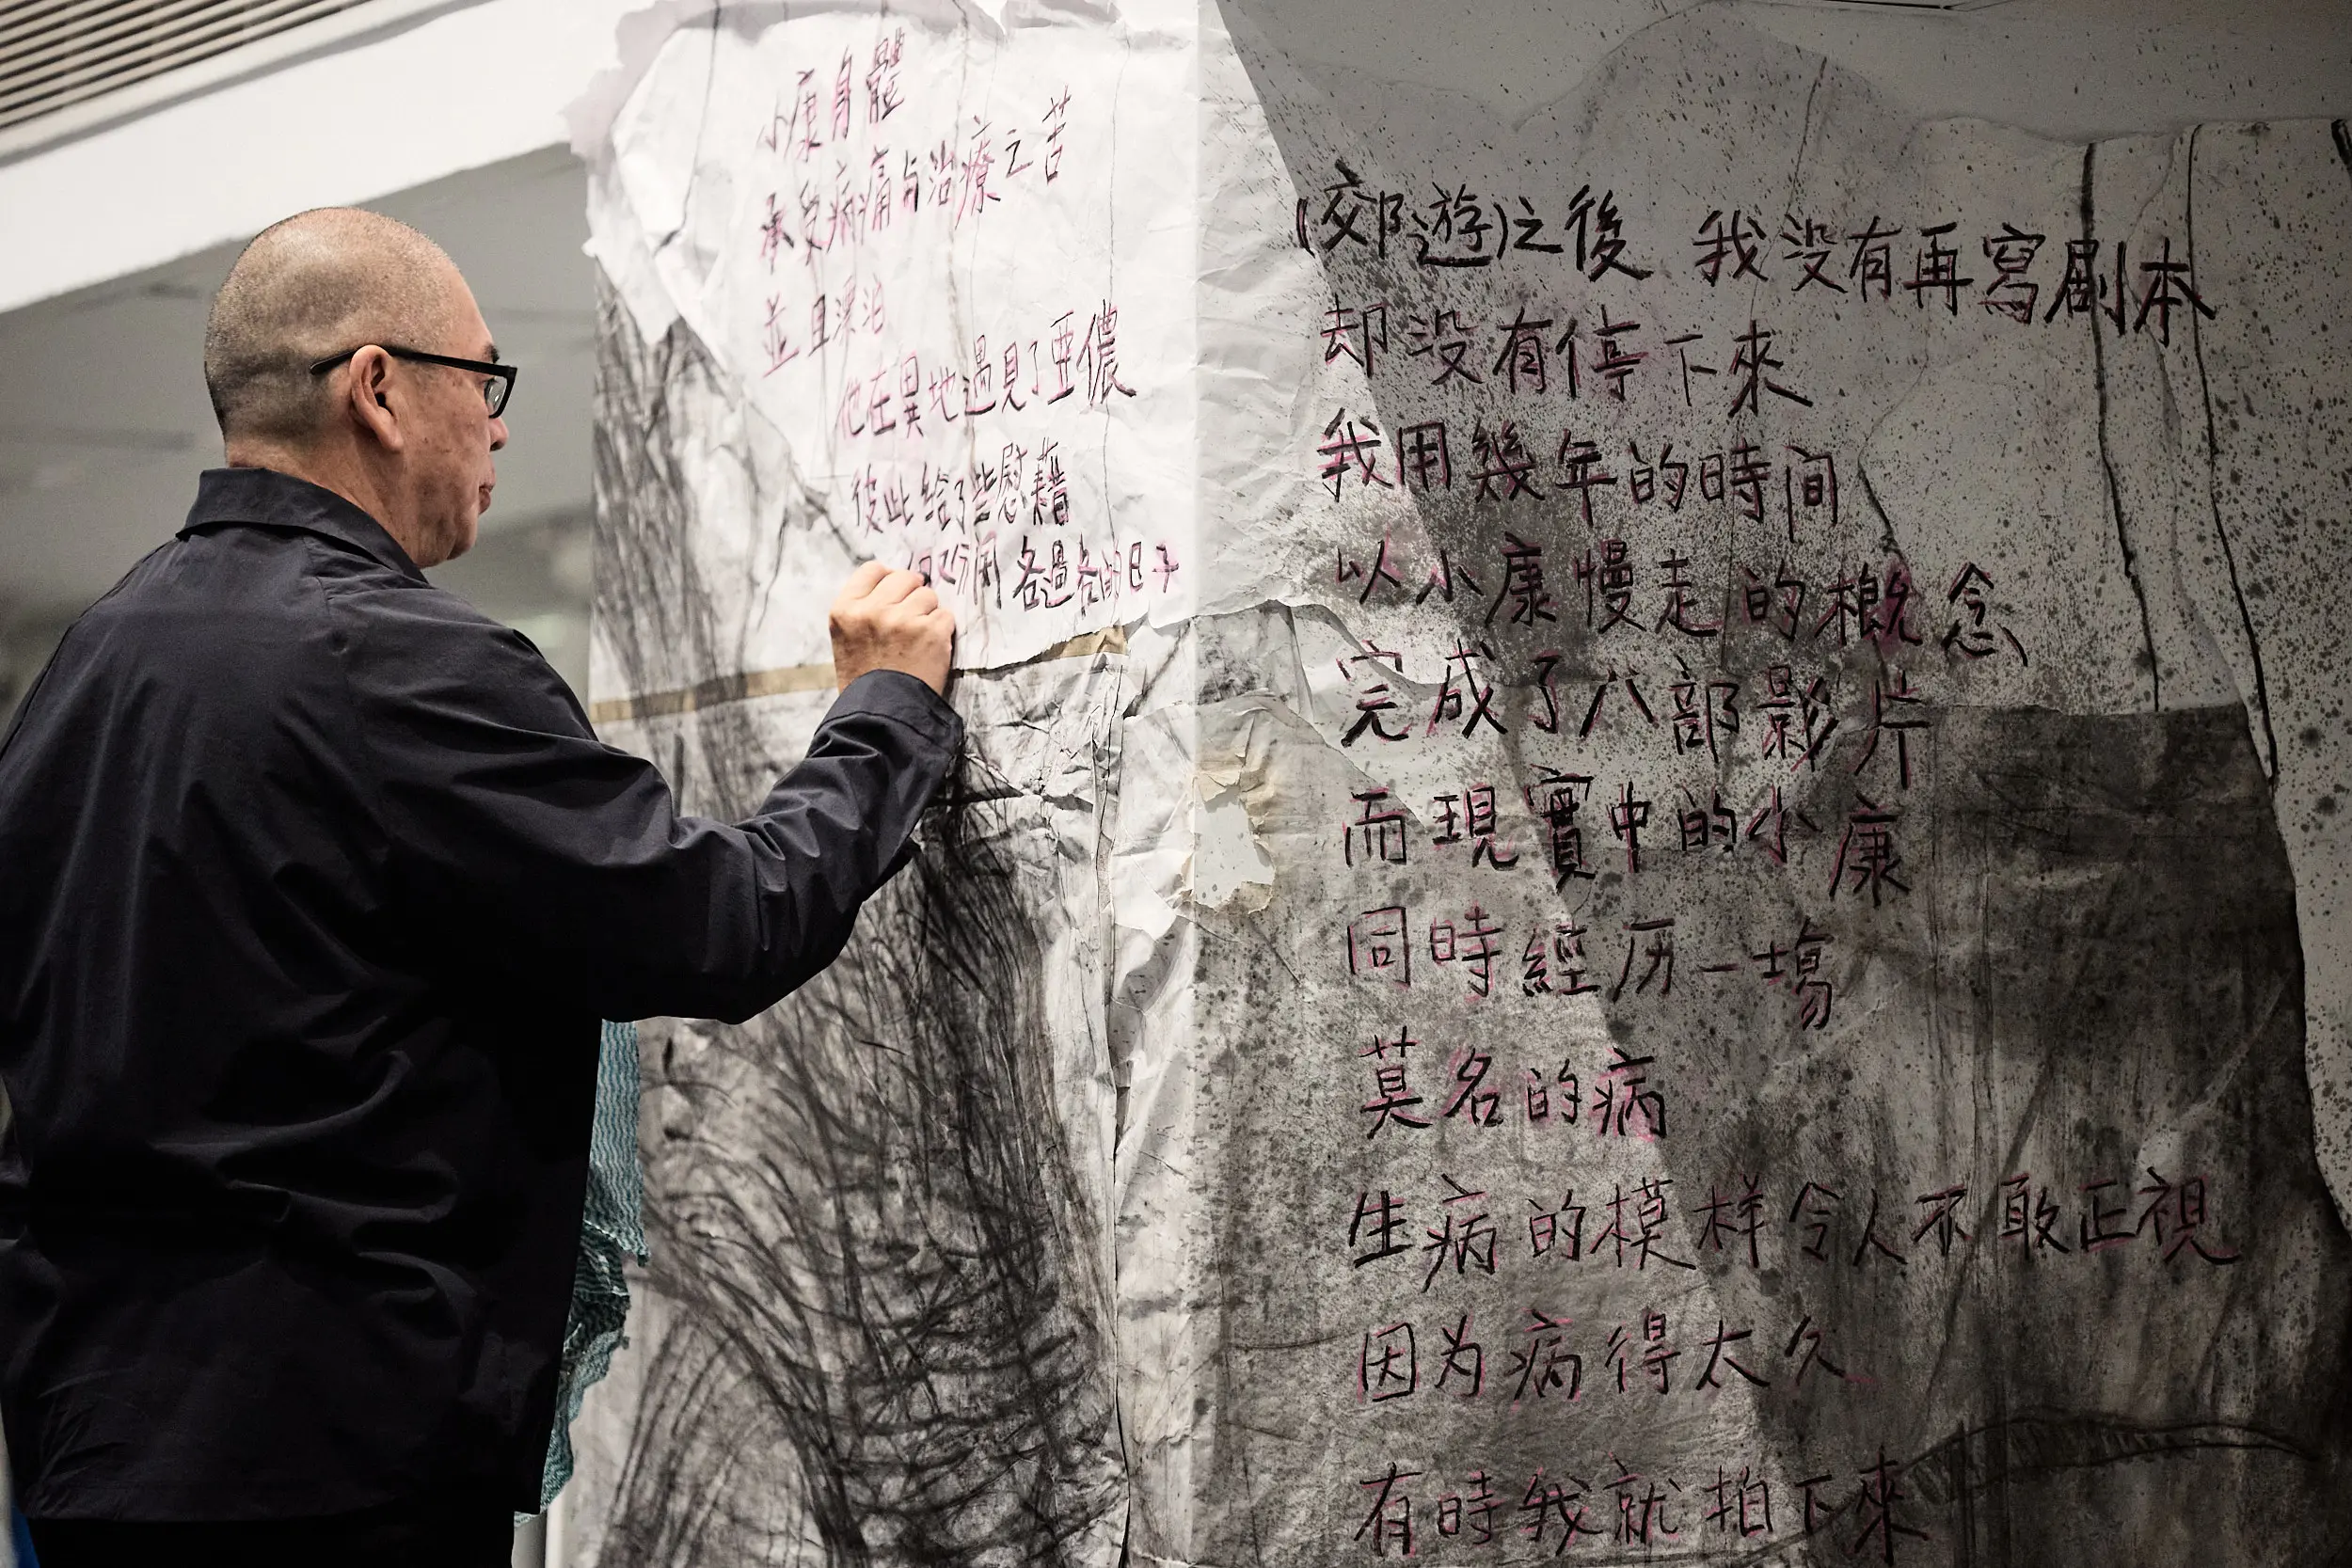 (郊遊)之後 我没有再寫劇本
却没有停下來
我用幾年的時间
以小康慢走的概念
完成了八部影片
而現實中的小康
同時經历一場
莫名的病
生病的模样令人不敢正視
因为病得太久
有時我就拍下來
小康身體
承受病痛与治療之苦
並且漂泊
他在異地遇見了亞儂
彼此給了些慰藉
但又分開 各過各的日子